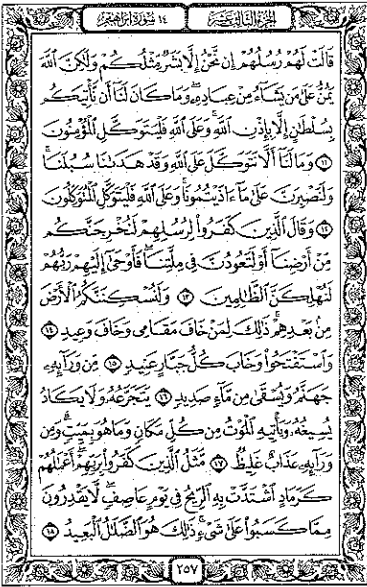 الجزء الثالث عشر ١٤ سورة إبراهيم
قَالَتْ لَهُمْ رُسُلُهُمْ إِن نَّحْنُ إِلَّا بَشَرٌ مِّثْلُكُمْ وَلَٰكِنَّ ٱللَّهَ
يَمُنُّ عَلَىٰ مَن يَشَآءُ مِنْ عِبَادِهِۦ ۖ وَمَا كَانَ لَنَآ أَن نَّأْتِيَكُم
بِسُلْطَٰنٍ إِلَّا بِإِذْنِ ٱللَّهِ ۚ وَعَلَى ٱللَّهِ فَلْيَتَوَكَّلِ ٱلْمُؤْمِنُونَ
١١ وَمَا لَنَآ أَلَّا نَتَوَكَّلَ عَلَى ٱللَّهِ وَقَدْ هَدَىٰنَا سُبُلَنَا ۚ
وَلَنَصْبِرَنَّ عَلَىٰ مَآ ءَاذَيْتُمُونَا ۚ وَعَلَى ٱللَّهِ فَلْيَتَوَكَّلِ ٱلْمُتَوَكِّلُونَ
١٢ وَقَالَ ٱلَّذِينَ كَفَرُوا۟ لِرُسُلِهِمْ لَنُخْرِجَنَّكُم
مِّنْ أَرْضِنَآ أَوْ لَتَعُودُنَّ فِى مِلَّتِنَا ۖ فَأَوْحَىٰٓ إِلَيْهِمْ رَبُّهُمْ
لَنُهْلِكَنَّ ٱلظَّٰلِمِينَ ١٣ وَلَنُسْكِنَنَّكُمُ ٱلْأَرْضَ
مِنۢ بَعْدِهِمْ ۚ ذَٰلِكَ لِمَنْ خَافَ مَقَامِى وَخَافَ وَعِيدِ ١٤
وَٱسْتَفْتَحُوا۟ وَخَابَ كُلُّ جَبَّارٍ عَنِيدٍ ١٥ مِّن وَرَآئِهِۦ
جَهَنَّمُ وَيُسْقَىٰ مِن مَّآءٍ صَدِيدٍ ١٦ يَتَجَرَّعُهُۥ وَلَا يَكَادُ
يُسِيغُهُۥ وَيَأْتِيهِ ٱلْمَوْتُ مِن كُلِّ مَكَانٍ وَمَا هُوَ بِمَيِّتٍ ۖ وَمِن
وَرَآئِهِۦ عَذَابٌ غَلِيظٌ ١٧ مَّثَلُ ٱلَّذِينَ كَفَرُوا۟ بِرَبِّهِمْ ۖ أَعْمَٰلُهُمْ
كَرَمَادٍ ٱشْتَدَّتْ بِهِ ٱلرِّيحُ فِى يَوْمٍ عَاصِفٍ ۖ لَّا يَقْدِرُونَ
مِمَّا كَسَبُوا۟ عَلَىٰ شَىْءٍ ۚ ذَٰلِكَ هُوَ ٱلضَّلَٰلُ ٱلْبَعِيدُ ١٨
٢٥٧